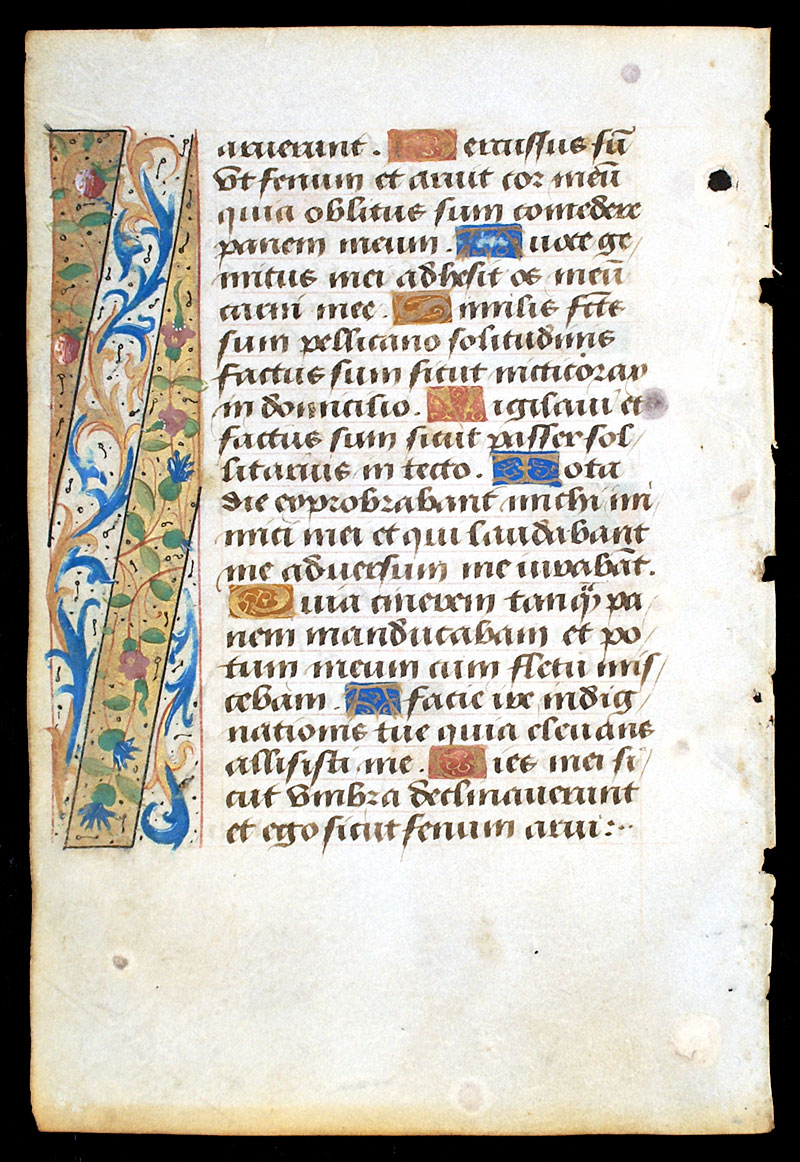 aruerunt. Percussus sū
vt fenum et aruit cor meū
quia oblitus sum comedere
panem meum. A uoce ge/
mitus mei adhesit os meū
carni mee. Similis fc̄s
sum pellicano solitudinis
factus sum sicut nicticorax
in domicilio. Vigilaui et
factus sum sicut passer sol/
litarius in tecto. Tota
die exprobrabant michi ini/
mici mei et qui laudabant
me aduersum me iurabāt.
Quia cinerem tanq̄ pa
nem manducabam et po/
tum meum cum fletu mis/
cebam. A facie ire indig/
nationis tue quia eleuans
allisisti me. Dies mei si/
cut vmbra declinauerunt
et ego sicut fenum arui: